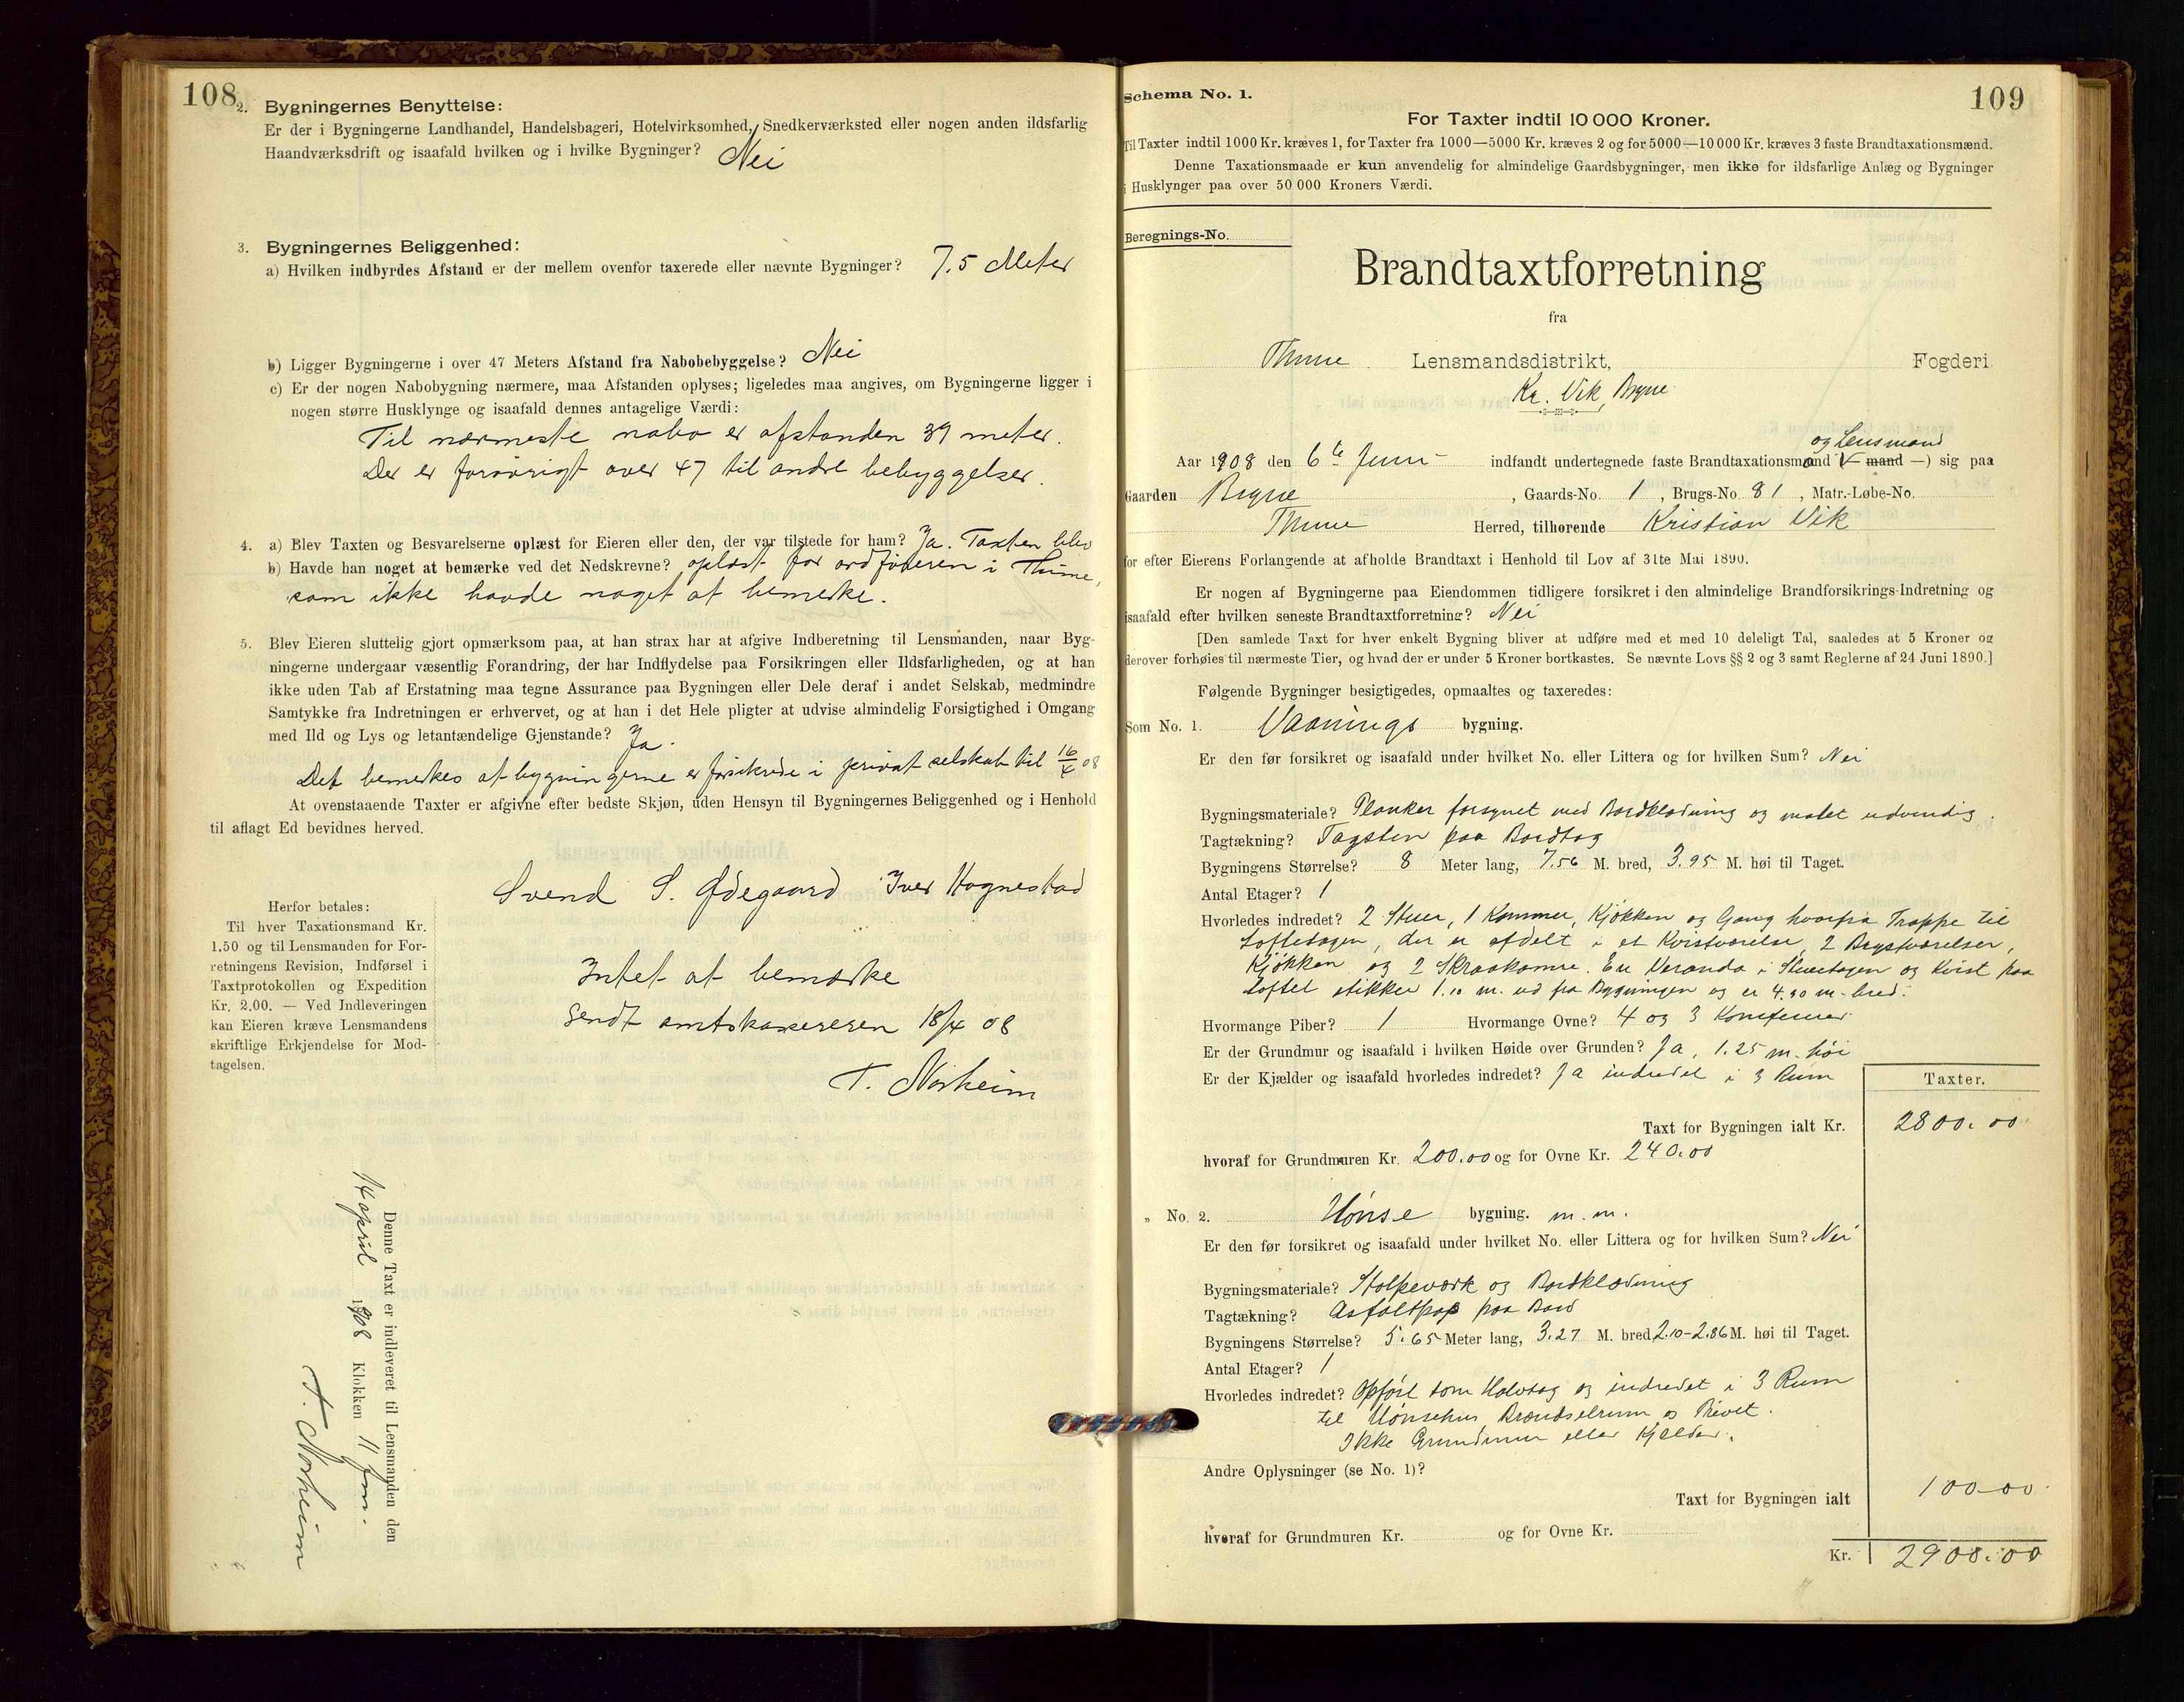 108
2. Bygningernes Benyttelse:
Er der i Bygningerne Landhandel, Handelsbageri, Hotelvirksomhed, Snedkerværksted eller nogen anden ildsfarlig
Haandværksdrift og isaafald hvilken og i hvilke Bygninger? Nei
3. Bygningernes Beliggenhed:
a) Hvilken indbyrdes Afstand er der mellem ovenfor taxerede eller nævnte Bygninger? 7.5 Meter
b) Ligger Bygningerne i over 47 Meters Afstand fra Nabobebyggelse? Nei
c) Er der nogen Nabobygning nærmere, maa Afstanden oplyses; ligeledes maa angives, om Bygningerne ligger i
nogen større Husklynge og isaafald dennes antagelige Værdi:
Til nærmeste nabo er afstanden 39 meter.
Der er forøvrigt over 47 til andre bebyggelser.
4. a) Blev Taxten og Besvarelserne oplæst for Eieren eller den, der var tilstede for ham? Ja. Taxten blev
b) Havde han noget at bemærke ved det Nedskrevne? oplæst for ordføreren i Thime,
som ikke havde noget at bemerke.
5. Blev Eieren sluttelig gjort opmærksom paa, at han strax har at afgive Indberetning til Lensmanden, naar Byg-
ningerne undergaar væsentlig Forandring, der har Indflydelse paa Forsikringen eller Ildsfarligheden, og at han
ikke uden Tab af Erstatning maa tegne Assurance paa Bygningen eller Dele deraf i andet Selskab, medmindre
Samtykke fra Indretningen er erhvervet, og at han i det Hele pligter at udvise almindelig Forsigtighed i Omgang
med Ild og Lys og letantændelige Gjenstande? Ja.
Det bemerkes at bygningerne er forsikrede i privat selskab til 16/4 08
At ovenstaaende Taxter er afgivne efter bedste Skjøn, uden Hensyn til Bygningernes Beliggenhed og i Henhold
til aflagt Ed bevidnes herved.
Svend S. Ødegaard Iver Hognestad
Herfor betales:
Til hver Taxationsmand Kr.
1.50 og til Lensmanden for For-
retningens Revision, Indførsel i
Taxtprotokollen og Expedition
Kr. 2.00. — Ved Indleveringen
kan Eieren kræve Lensmandens
skriftlige Erkjendelse for Mod-
tagelsen.
Intet at bemærke
Sendt amtskasereren 18/4 08
T. Norheim
Denne Taxt er indleveret til Lensmanden den
14 april 1908 Klokken 11 fm.
T. Norheim
Schema No. 1.
109
For Taxter indtil 10 000 Kroner.
Til Taxter indtil 1000 Kr. kræves 1, for Taxter fra 1000—5000 Kr. kræves 2 og for 5000—10 000 Kr. kræves 3 faste Brandtaxationsmænd.
Denne Taxationsmaade er kun anvendelig for almindelige Gaardsbygninger, men ikke for ildsfarlige Anlæg og Bygninger
i Husklynger paa over 50 000 Kroners Værdi.
Beregnings-No.
Brandtaxtforretning
fra
Thime Lensmandsdistrikt, Fogderi
Kr. Vik, Bryne
og Lensmand
Aar 1908 den 6te Juni indfandt undertegnede faste Brandtaxationsmand (— mand —) sig paa
Gaarden Bryne, Gaards-No. 1, Brugs-No. 81, Matr.-Løbe-No.
Thime Herred, tilhørende Kristian Vik
for efter Eierens Forlangende at afholde Brandtaxt i Henhold til Lov af 31te Mai 1890.
Er nogen af Bygningerne paa Eiendommen tidligere forsikret i den almindelige Brandforsikrings-Indretning og
isaafald efter hvilken seneste Brandtaxtforretning? Nei
[Den samlede Taxt for hver enkelt Bygning bliver at udføre med et med 10 deleligt Tal, saaledes at 5 Kroner og
derover forhøies til nærmeste Tier, og hvad der er under 5 Kroner bortkastes. Se nævnte Lovs §§ 2 og 3 samt Reglerne af 24 Juni 1890.]
Følgende Bygninger besigtigedes, opmaaltes og taxeredes:
Som No. 1. Vaanings bygning.
Er den før forsikret og isaafald under hvilket No. eller Littera og for hvilken Sum? Nei
Bygningsmateriale? Planker forsynet med Bordklædning og malet udvendig.
Tagtækning? Tagsten paa Bordtag
Bygningens Størrelse? 8 Meter lang, 7.56 M. bred, 3.95 M. høi til Taget.
Antal Etager? 1
Hvorledes indredet? 2 Stuer, 1 Kammer, Kjøkken og Gang hvorfra Trappe til
Loftetagen, der er afdelt i et Kvistværelse, 2 Brystværelser,
Kjøkken og 2 Skraakamre. En Veranda i Stueetagen og Kvist paa
Loftet stikker 1.10 m. ud fra Bygningen og er 4.30 m. bred.
Hvormange Piber? 1 Hvormange Ovne? 4 og 3 Komfurer
Er der Grundmur og isaafald i hvilken Høide over Grunden? Ja, 1.25 m. høi
Er der Kjælder og isaafald hvorledes indredet? Ja indredet i 3 Rum
Taxter.
Taxt for Bygningen ialt Kr. 2800.00
hvoraf for Grundmuren Kr. 200.00 og for Ovne Kr. 240.00
„ No. 2. Hønse bygning. m.m.
Er den før forsikret og isaafald under hvilket No. eller Littera og for hvilken Sum? Nei
Bygningsmateriale? Stolpeværk og Bordklædning
Tagtækning? Asfaltpap paa Bord
Bygningens Størrelse? 5.65 Meter lang, 3.27 M. bred 2.10-2.86 M. høi til Taget.
Antal Etager? 1
Hvorledes indredet? Opført som Halvtag og indredet i 3 Rum
til Hønsehus, Brændselrum og Privet.
Ikke Grundmur eller Kjælder.
Andre Oplysninger (se No. 1)?
Taxt for Bygningen ialt 100.00
hvoraf for Grundmuren Kr. og for Ovne Kr.
Kr. 2900.00